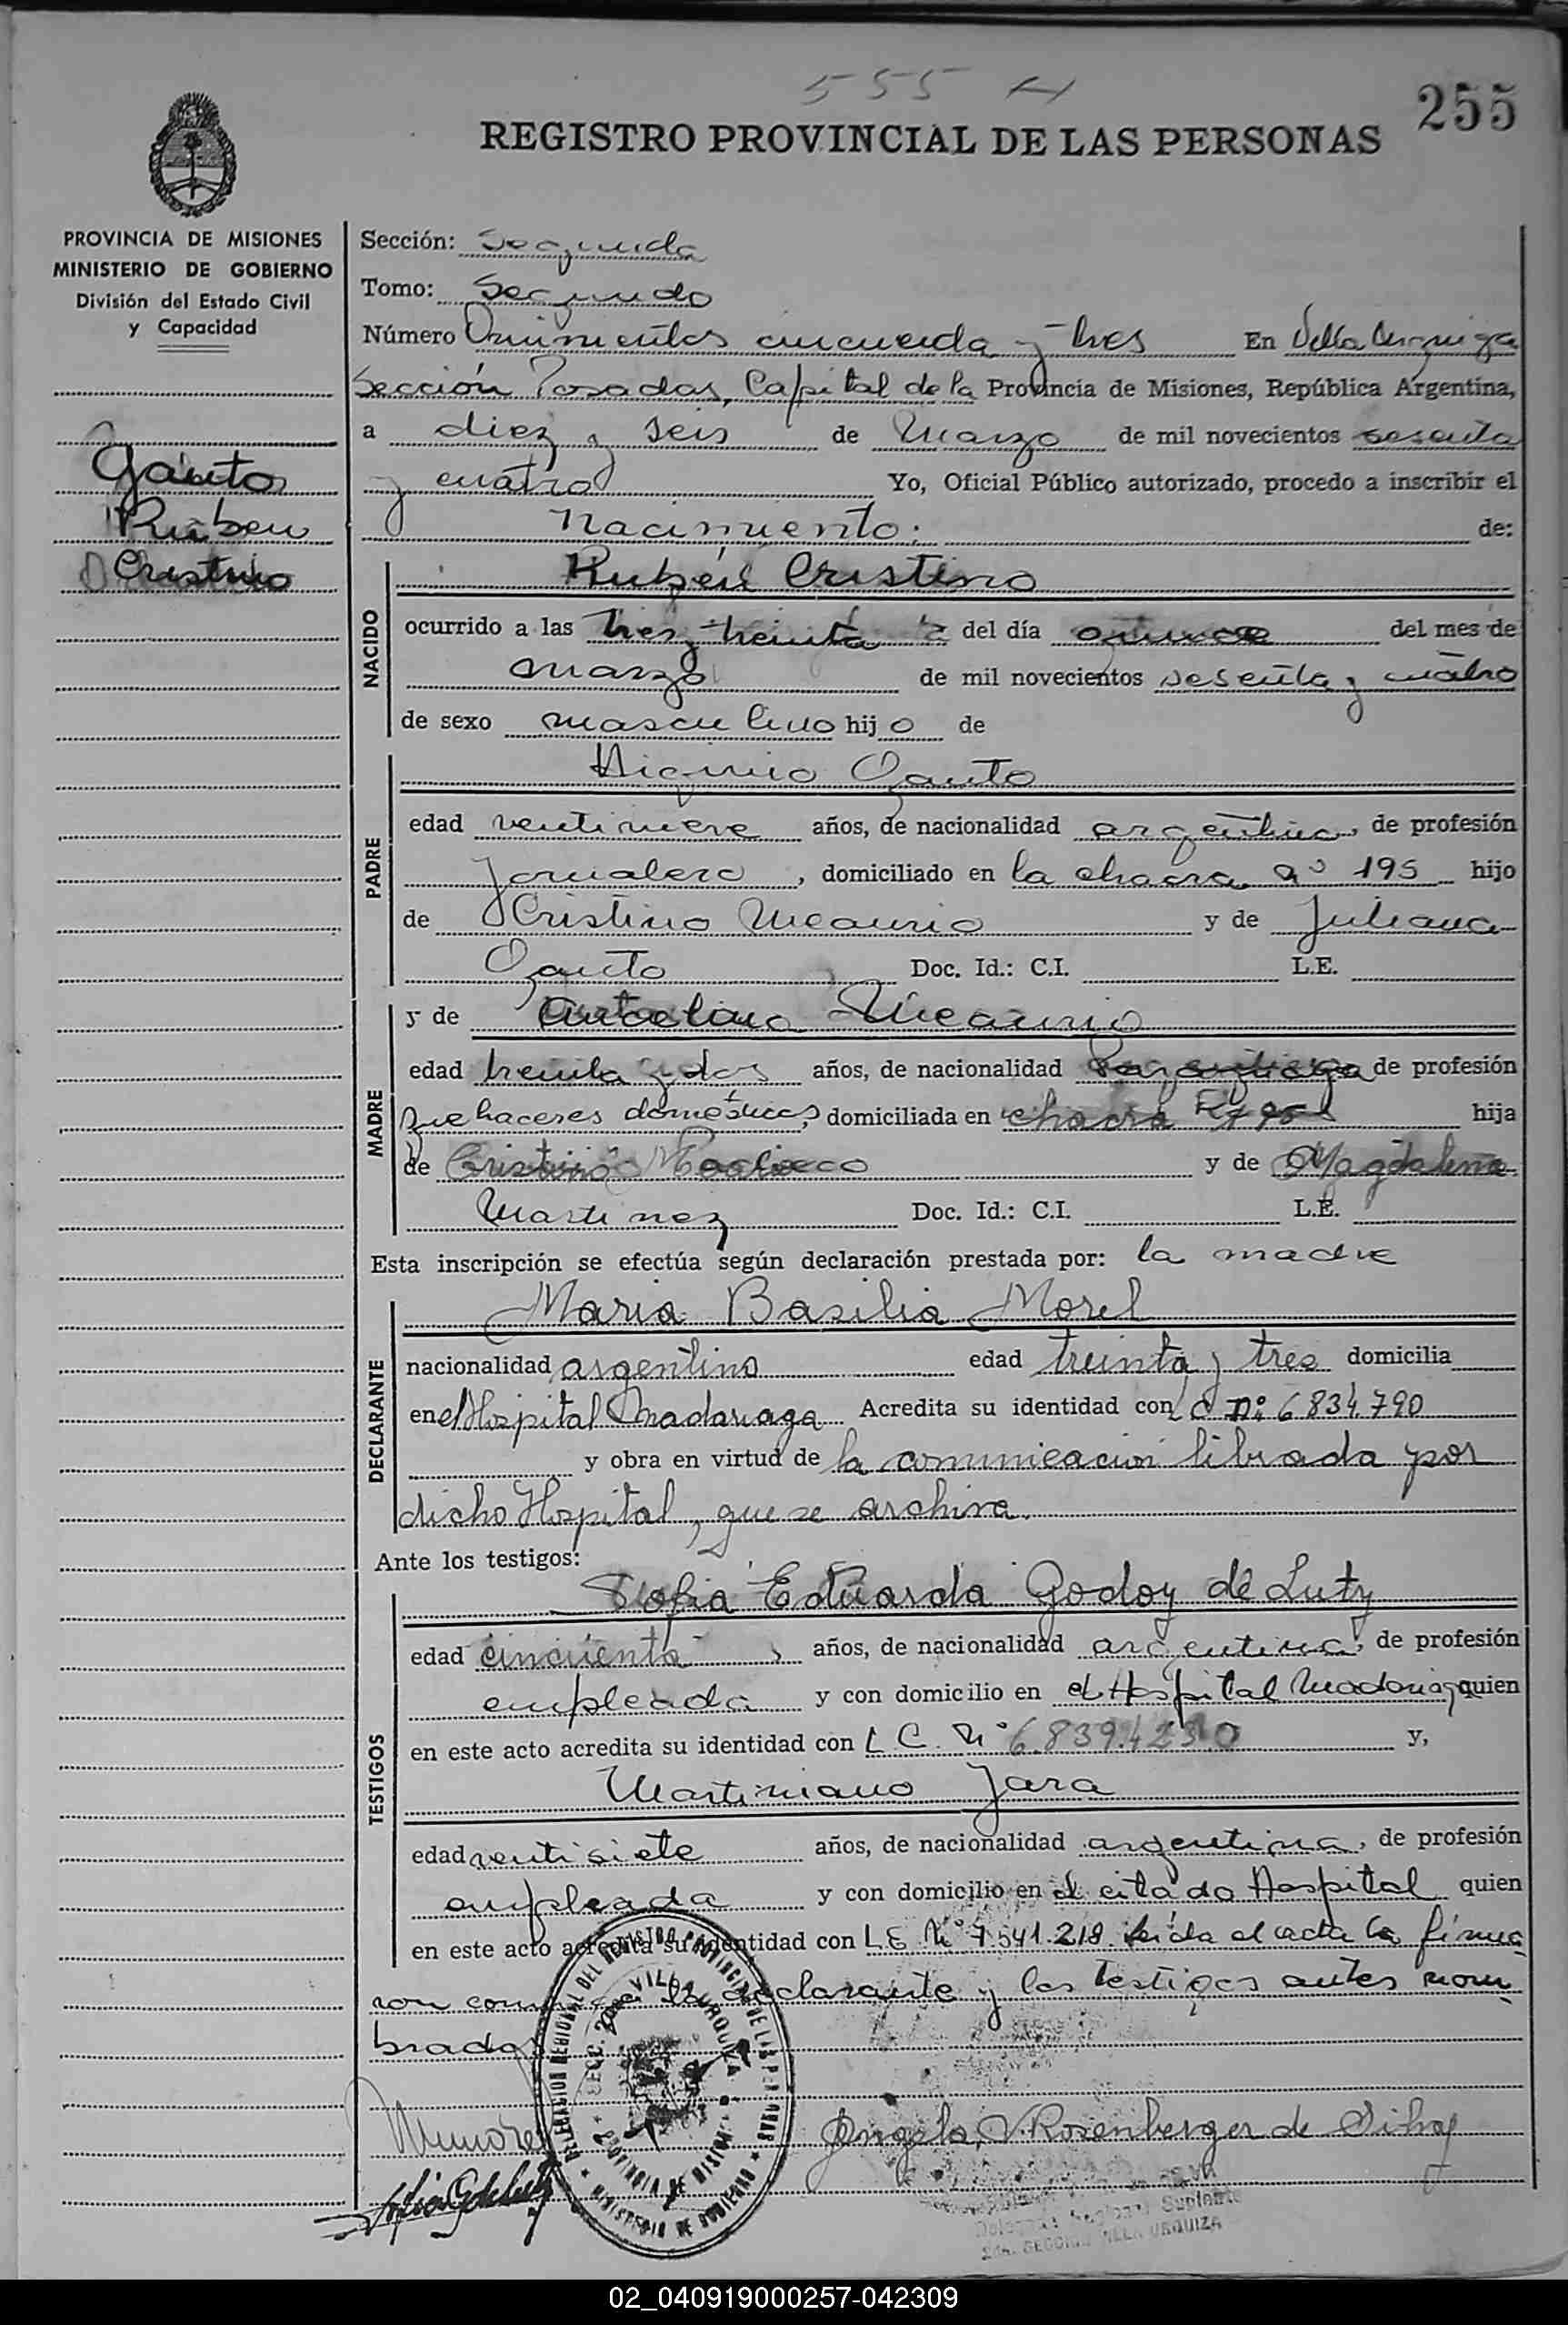 555
255
REGISTRO PROVINCIAL DE LAS PERSONAS
PROVINCIA DE MISIONES
MINISTERIO DE GOBIERNO
División del Estado Civil
y Capacidad
Gauto
Ruben
Cristino
Sección: Segunda
Tomo: Segundo
Número Quinientos cincuenta y tres En Villa Urquiza
Sección Posadas, Capital de la Provincia de Misiones, República Argentina,
a diez y seis de Marzo de mil novecientos sesenta
y cuatro Yo, Oficial Público autorizado, procedo a inscribir el
Nacimiento: de:
NACIDO
Rubén Cristino
ocurrido a las tres y treinta del día quince del mes de
marzo de mil novecientos sesenta y cuatro
de sexo masculino hijo de
PADRE
Higinio Gauto
edad ventinueve años, de nacionalidad argentina, de profesión
Jornalero, domiciliado en la chacra nº 195 hijo
de Cristino Meaurio y de Juliana
Gauto Doc. Id.: C.I. L.E.
MADRE
y de Meaurio
edad treinta y dos años, de nacionalidad de profesión
Quehaceres domésticos, domiciliada en chacra hija
de Cristino y de Magdalena
Martinez Doc. Id.: C.I. L.E.
Esta inscripción se efectúa según declaración prestada por: la madre
DECLARANTE
Maria Basilia Morel
nacionalidad argentina edad treinta y tres domicilia
en el Hospital Madariaga Acredita su identidad con L C nº 6834.790
y obra en virtud de la comunicacion librada por
dicho Hospital, que se archiva.
Ante los testigos:
TESTIGOS
Sofia Eduarda Godoy de Luty
edad cincuenta, años, de nacionalidad argentina, de profesión
empleada y con domicilio en el Hospital Madariaga quien
en este acto acredita su identidad con L C. Nº 6.839.4230 y,
Martiniano Jara
edad ventisiete años, de nacionalidad argentina, de profesión
empleada y con domicilio en el citado Hospital quien
en este acto acredita su identidad con L E Nº 7.541.218 leida el acta la firma
ron declarante y los testigos antes nom
brados
DELEGACION REGIONAL DEL REGISTRO PROVINCIAL DE LAS PERSONAS
SECC. 2da. VILLA URQUIZA
PROVINCIA DE MISIONES
MINISTERIO DE GOBIERNO
Angela V. Rosenberger de Silva
Delegada Regional Suplente
2da. SECCION VILLA URQUIZA
02_040919000257-042309